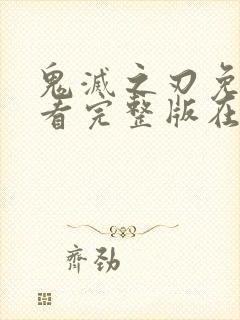 鬼滅之刃免
看完整版在
齊勁